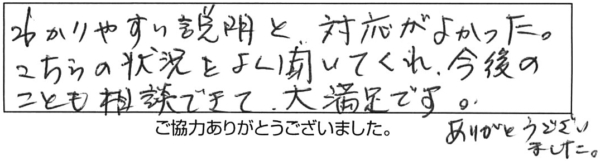 わかりやすい説明と、対応がよかった。
こちらの状況をよく聞いてくれ、今後の
ことも相談できて、大満足です。
ご協力ありがとうございました。
ありがとうござい
ました。